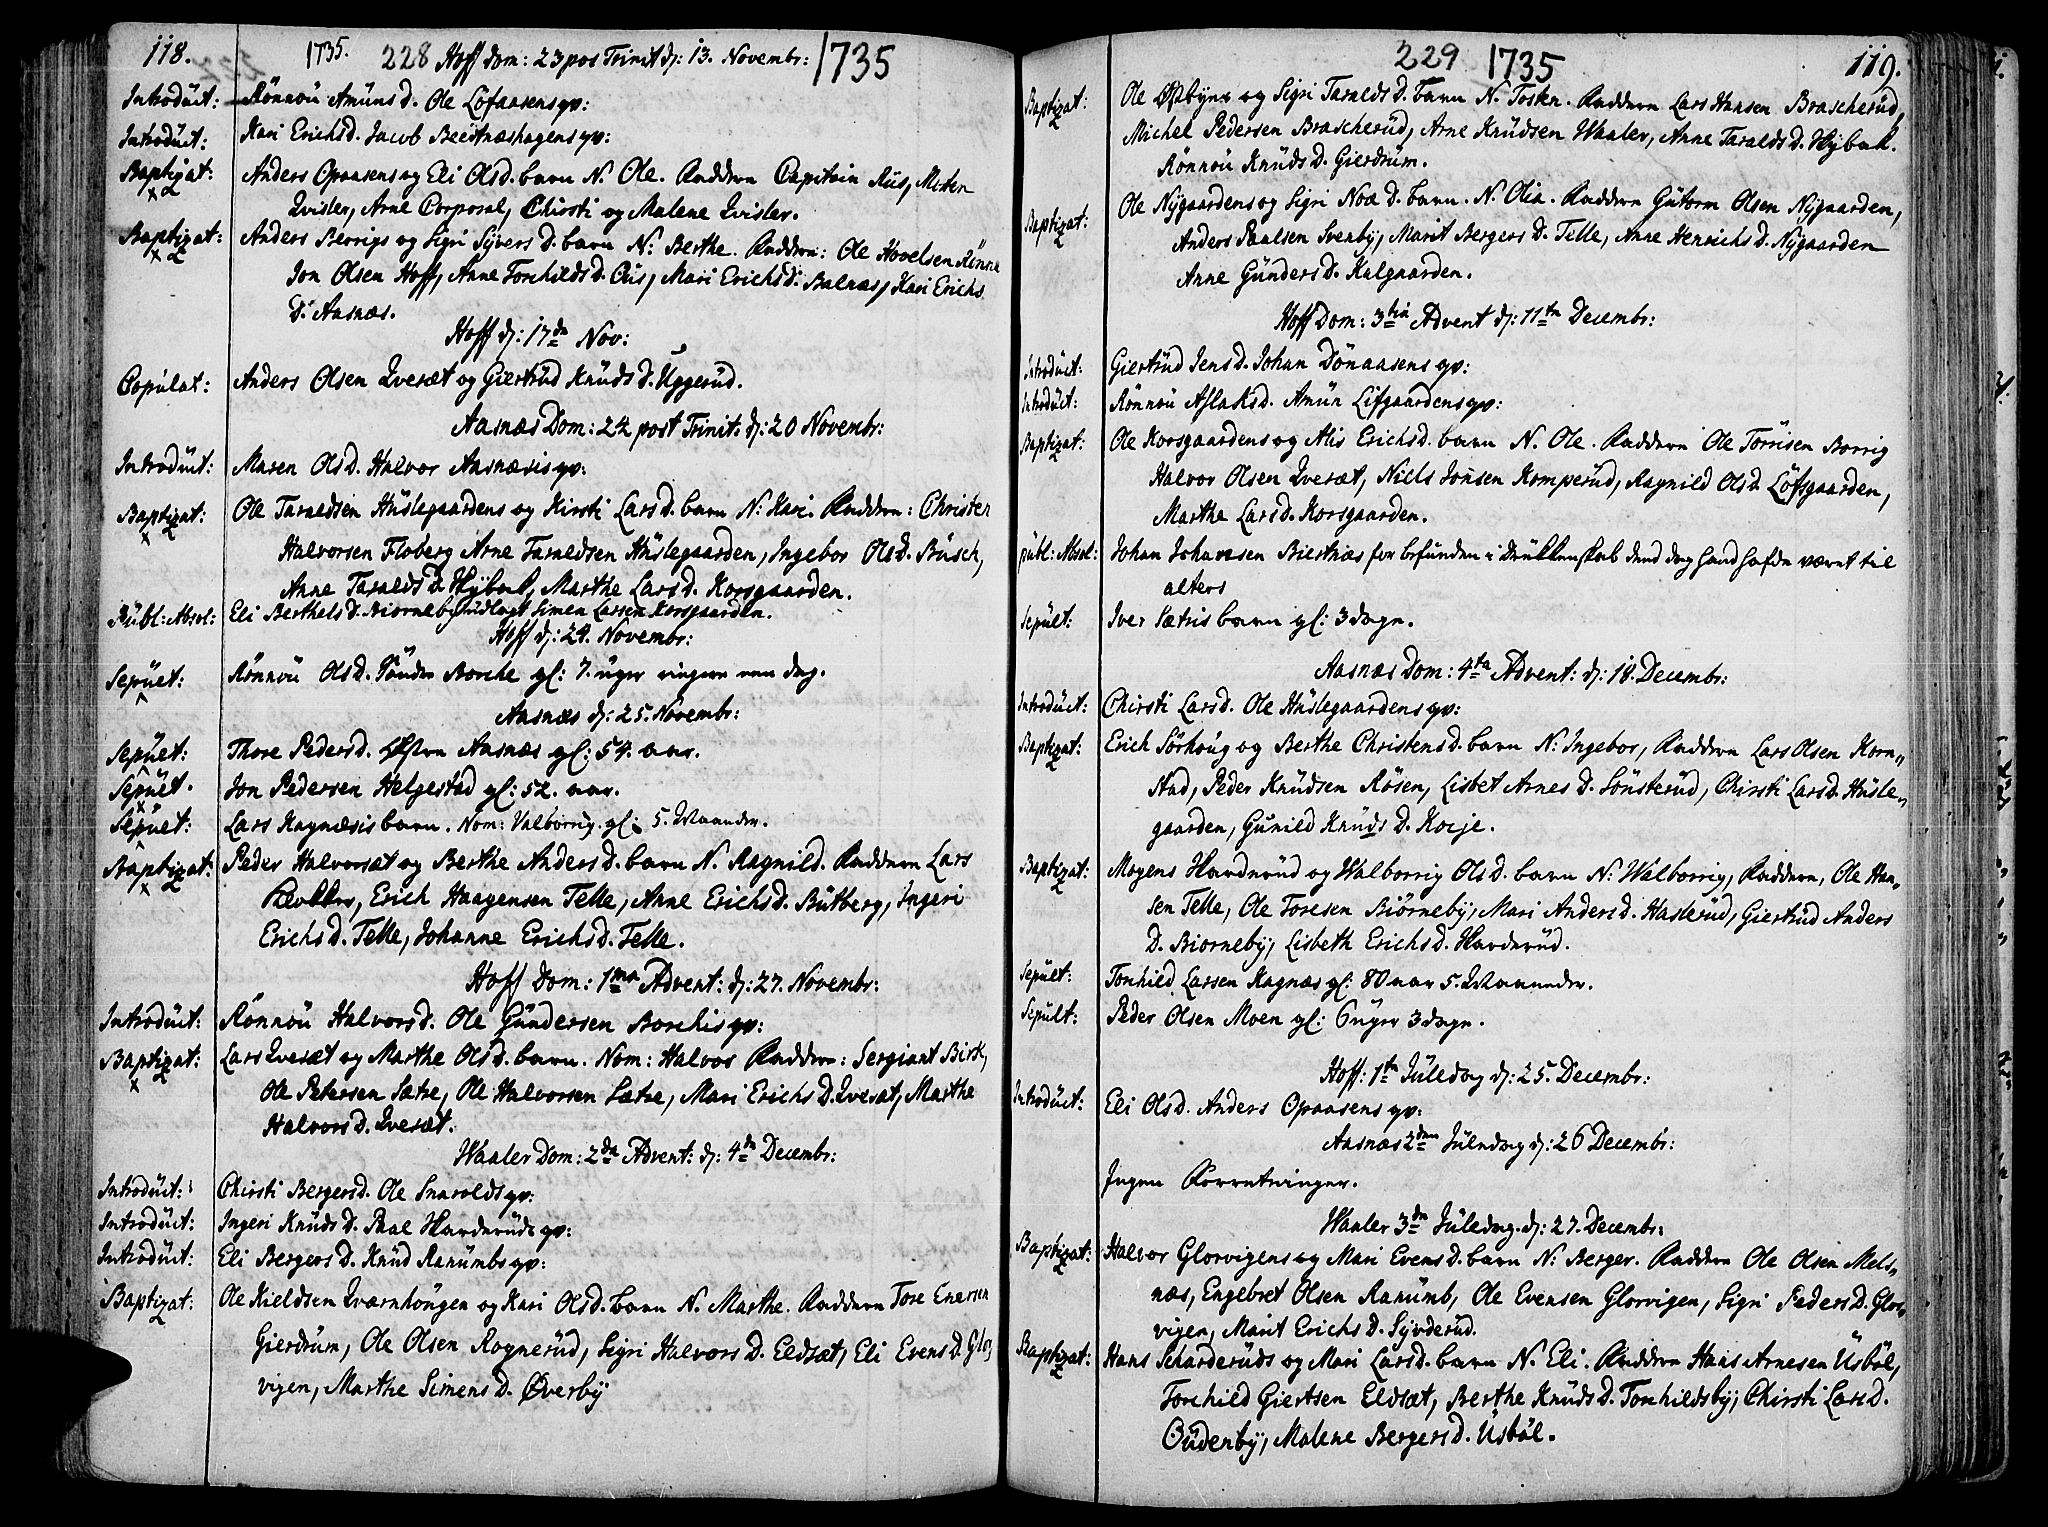 118.
1735. 228 Hoff Dom: 23 pos Trinit d: 13. Novembr: 1735
Introdüit: Rönnou Amünsd. Ole Lofaasens qv:
Introdüit: Kari Erichsd. Jacob Beestnæshagens qv:
Baptizat: Anders Opaasens og Eli Olsd. barn N. Ole. Faddern Capitain Rus, Morten
Qvisler, Arne Corporal, Chirsti og Malene Qvisler.
Baptizat: Anders Berrigs og Sigri Syvers D. barn N: Berthe. Faddern: Ole Hovelsen Rönne
Jon Olsen Hoff, Anne Torchildsd. Ous, Mari Erichsd: Balnæs, Kari Erichs
D: Aasnæs.
Hoff d: 17de Nov:
Copulat: Anders Olsen Qvesæt og Giertrüd Knüdsd. Uggerüd.
Aasnæs Dom: 24 post Trinit: d: 20 Novembr:
Introdüit: Maren Olsd. Halvor Aasnæsis qv:
Baptizat: Ole Taraldsen Hüslegaardens og Kirsti Larsd. barn N: Kari. Faddern: Christen
Halvorsen Floberg Arne Taraldsen Hüslegaarden, Ingebor Olsd. Büsch,
Anne Taraldsd. Hÿbak, Marthe Larsd. Korsgaarden.
Publ: Absol: Eli Berthelsd. Biorneby udlagt Simen Larsen Korsgaarden.
Hoff d: 24. Novembr:
Sepült: Rönnou Olsd. Söndre Borche gl: 7. uger ringere een dag.
Aasnæs d: 25. Novembr:
Sepült: Thore Pedersd. Østre Aasnæs gl: 54. aar.
Sepült. Jon Pedersen Helgestad gl: 52. aar.
Sepült: Lars Kagnæsis barn. Nom: Valborrig. gl: 5. Maaneder.
Baptizat: Peder Halvorsæt og Berthe Andersd. barn N. Ragnild. Faddern Lars
Klokker, Erich Haagensen Telle, Anne Erichsd. Bütberg, Ingeri
Erichsd. Telle, Johanne Erichsd. Telle.
Hoff Dom: 1ma Advent: d: 27. Novembr:
Introdüit: Rönnou Halvorsd: Ole Gündersen Borchis qv:
Baptizat: Lars Qvesæt og Marthe Olsd. barn. Nom: Halvor Faddern: Sergiant Birk,
Ole Petersen Sætre, Ole Halvorsen Sætre, Mari Erichs D. Qvesæt, Marthe
Halvorsd. Qvesæt.
Waaler Dom: 2da Advent: d: 4de Decembr:
Introdüit: Chirsti Bergersd. Ole Snarolds qv:
Introdüit: Ingeri Knüds D. Paal Harderüds qv:
Introdüit: Eli Bergers D. Knüd Ranumbs qv:
Baptizat: Ole Kieldsen Qværnhougen og Kari Olsd. barn N. Marthe. Faddern Tore Enersen
Gierdrum, Ole Olsen Rognerüd, Sigri Halvors D. Eldsæt, Eli Evens D. Glor
vigen, Marthe Simens D. Øverby
229 1735 119.
Baptizat: Ole Østbyes og Sigri Taralds D. barn N. Tosten. Faddern Lars Hansen Brascherüd,
Michel Pedersen Brascherüd, Arne Knüdsen Waaler, Anne Taralds D. Hÿbak.
Rönnou Knüds D. Gierdrum.
Baptizat: Ole Nÿgaardens og Sigri Noæ D. barn. N. Olia. Faddern Gütorm Olsen Nÿgaarden,
Anders Paalsen Svenby, Marit Bergers D. Telle, Anne Henrichs D. Nÿgaarden
Anne Günders D. Kalgaarden.
Hoff Dom: 3tia Advent d: 11te Decembr:
Introdüit: Giertrüd Jens D. Johan Dönaasens qv:
Introdüit: Rönnou Aslaksd. Amün Lifgaardens qv:
Baptizat: Ole Korsgaardens og Alis Erichsd. barn N. Ole. Faddern Ole Torrisen Borrig
Halvor Olsen Qvesæt, Niels Jonsen Komperüd, Ragnild Olsd. Löfsgaarden,
Marthe Larsd. Korsgaarden.
publ: Absol: Johan Johansen Biestnæs for befunden i Drukkenskab dend dag hand hafde været til
alters
Sepült: Iver Sætris barn gl: 3 dage.
Aasnæs Dom: 4ta Advent: d: 18. Decembr:
Introdüit: Chirsti Larsd. Ole Hüslegaardens qv:
Baptizat: Erich Sörhoug og Berthe Christensd. barn N: Ingebor, Faddern Lars Olsen Korn-
stad, Peder Knüdsen Rösen, Lisbet Arnes D. Sönsterüd, Chirsti Larsd. Hüsle-
gaarden, Gunild Knüds D. Koeje.
Baptizat: Mogens Harderüd og Walborrig Olsd. barn N: Walborrig, Faddern, Ole Han-
sen Telle, Ole Toresen Biörneby, Mari Andersd. Hasterüd, Giertrüd Anders
D. Biorneby, Lisbeth Erichsd. Harderüd.
Sepült: Torchild Larsen Kagnæs gl: 80 aar 5. Maaneder.
Sepült: Peder Olsen Moen gl: 6 uger 3 dage.
Hoff: 1te Jüledag d: 25. Decembr:
Introdüit: Eli Olsd. Anders Opaasens qv:
Aasnæs 2den Jüledag d: 26 Decembr:
Ingen Forretninger.
Waaler 3de Jüledag. d: 27. Decembr:
Baptizat: Halvor Glorvigens og Mari Evens D. barn N: Berger. Faddern Ole Olsen Mels-
næs, Engebret Olsen Ranumb, Ole Evensen Glorvigen, Sigri Peders D. Glor-
vigen, Marit Erichs D. Sÿnderüd.
Baptizat: Hans Scharderüds og Mari Larsd. barn N. Eli. Faddern Hans Arnesen Usböl,
Torchild Giertsen Eldsæt, Berthe Knüds D. Torchildsby, Chirsti Lars D.
Oudenby, Malene Bergersd. Usböl.